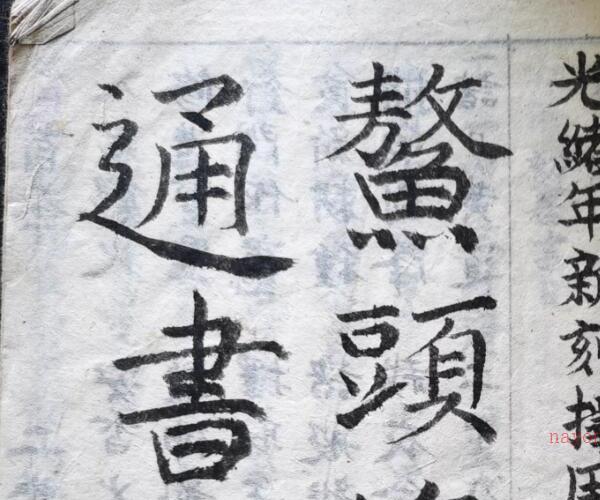 光緒年新刻擇用
鰲頭
通書